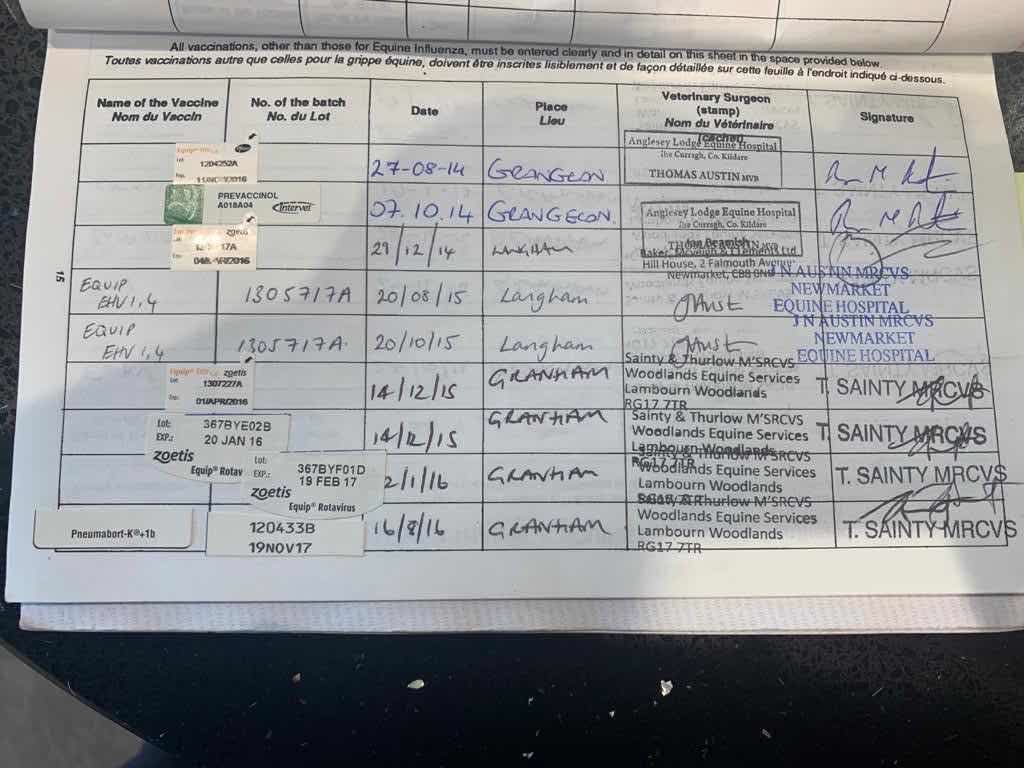 All vaccinations, other than those for Equine Influenza, must be entered clearly and in detail on this sheet in the space provided below.
Toutes vaccinations autre que celles pour la grippe équine, doivent être inscrites lisiblement et de façon détaillée sur cette feuille à l'endroit indiqué ci-dessous.
Name of the Vaccine
Nom du Vaccin
No. of the batch
No. du Lot
Date
Place
Lieu
Veterinary Surgeon
(stamp)
Nom du Vétérinaire
(cachet)
Signature
Lot: 1204252A
Exp.
27-08-14
GRANGECON
Anglesey Lodge Equine Hospital
The Curragh, Co. Kildare
THOMAS AUSTIN MVB
PREVACCINOL
A018A04
Intervet
07.10.14
GRANGECON.
Anglesey Lodge Equine Hospital
The Curragh, Co. Kildare
THOMAS AUSTIN MVB
zoetis
29/12/14
LANGHAM
Hill House, 2 Falmouth Avenue
Newmarket, CB8 0NB
EQUIP
EHV 1,4
1305717A
20/08/15
Langham
JAust
J N AUSTIN MRCVS
NEWMARKET
EQUINE HOSPITAL
EQUIP
EHV 1,4
1305717A.
20/10/15
Langham
JAust
J N AUSTIN MRCVS
NEWMARKET
EQUINE HOSPITAL
zoetis
Lot 1307227A
Exp. 01/APR/2016
14/12/15
GRANHAM
Sainty & Thurlow M'SRCVS
Woodlands Equine Services
Lambourn Woodlands
RG17 7TR
T. SAINTY MRCVS
Lot: 367BYE02B
EXP.: 20 JAN 16
zoetis
Equip® Rotav
14/12/15
GRANHAM
Sainty & Thurlow M'SRCVS
Woodlands Equine Services
Lambourn Woodlands
RG17 7TR
T. SAINTY MRCVS
Lot: 367BYF01D
EXP.: 19 FEB 17
zoetis
Equip® Rotavirus
2/1/16
GRANTHAM
Sainty & Thurlow M'SRCVS
Woodlands Equine Services
Lambourn Woodlands
RG17 7TR
T. SAINTY MRCVS
Pneumabort-K®+1b
120433B
19NOV17
16/8/16
GRANTHAM
Sainty & Thurlow M'SRCVS
Woodlands Equine Services
Lambourn Woodlands
RG17 7TR
T. SAINTY MRCVS
15